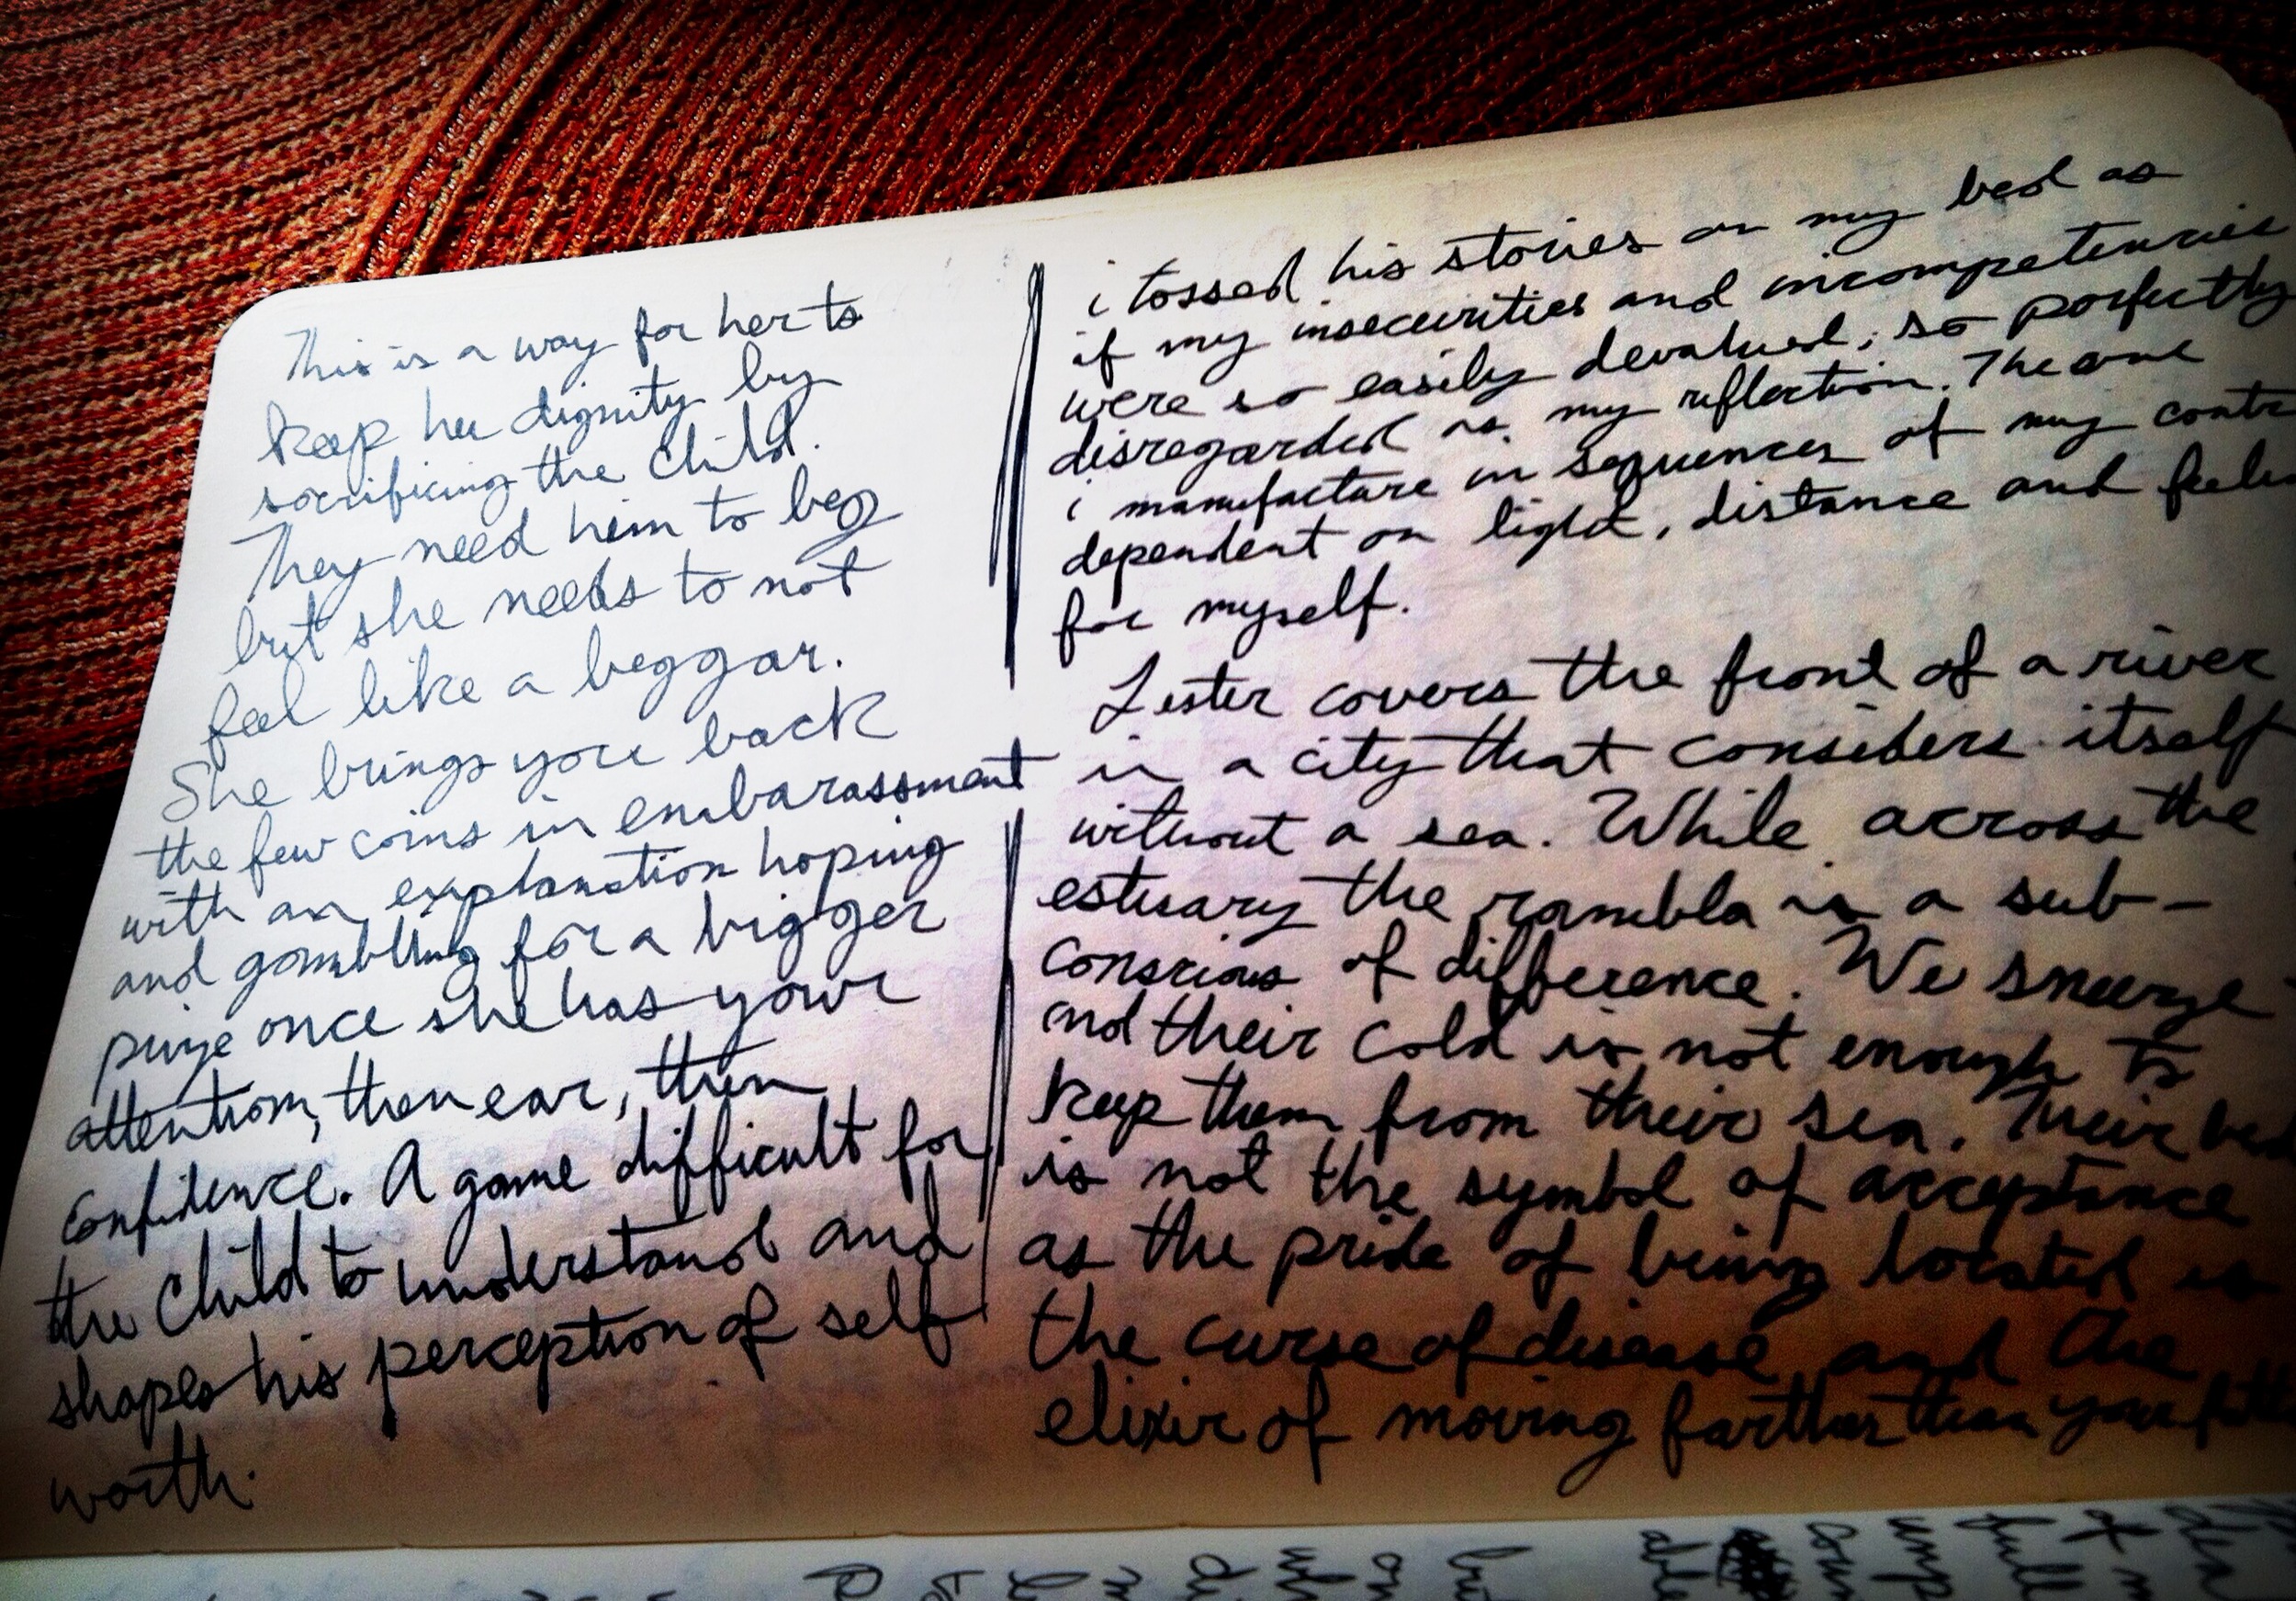 This is a way for her to
keep her dignity by
sacrificing the child.
They need him to beg
but she needs to not
feel like a beggar.
She brings you back
the few coins in embarassment
with an explanation hoping
and gambling for a bigger
prize once she has your
attention, then ear, then
confidence. A game difficult for
the child to understand and
shapes his perception of self
worth.
i tossed his stories on my bed as
if my insecurities and incompetencies
were so easily devalued, so perfectly
disregarded as my reflection. The one
i manufacture in sequences of my
dependent on light, distance and
for myself.
Lester covers the front of a river
in a city that considers itself
without a sea. While across the
estuary the rambla is a sub-
conscious of difference. We sneeze
and their cold is not enough to
keep them from their sea. Their
is not the symbol of acceptance
as the pride of being located is
the curse of disease and the
elixir of moving farther than your